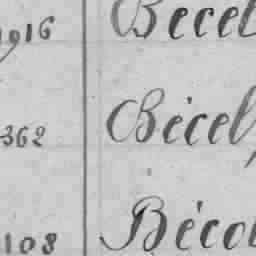 1916 Bécel
362 Bécel
108 Béco